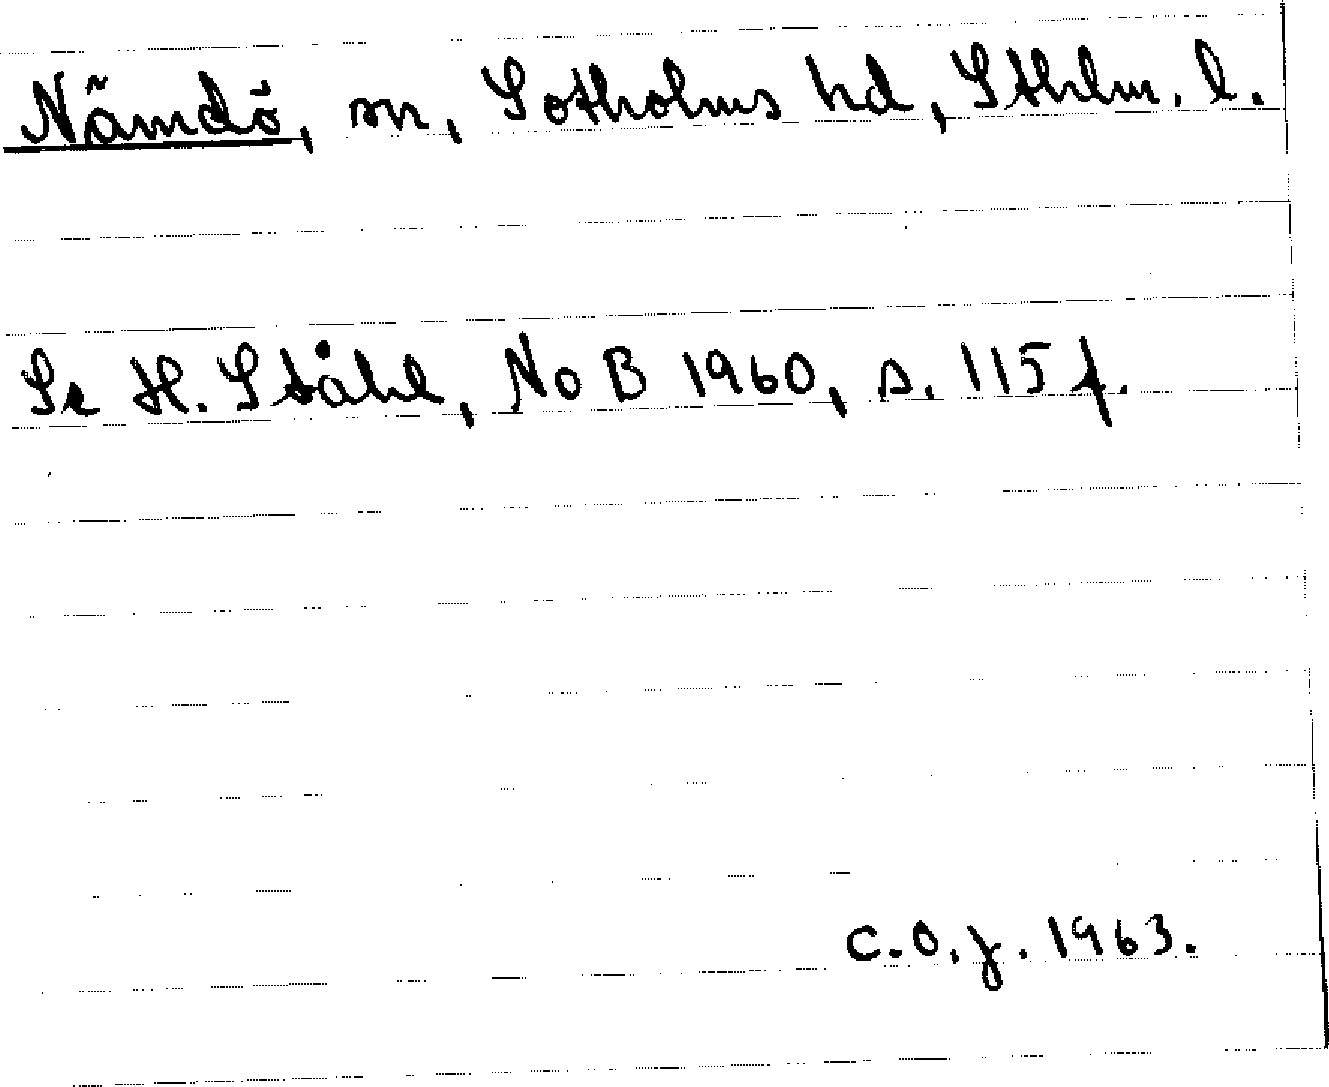 Nämdö, sn, Sotholms hd, Sthlm. l.
Se H. Ståhl, NoB 1960, s. 115 f.
C.O.J. 1963.